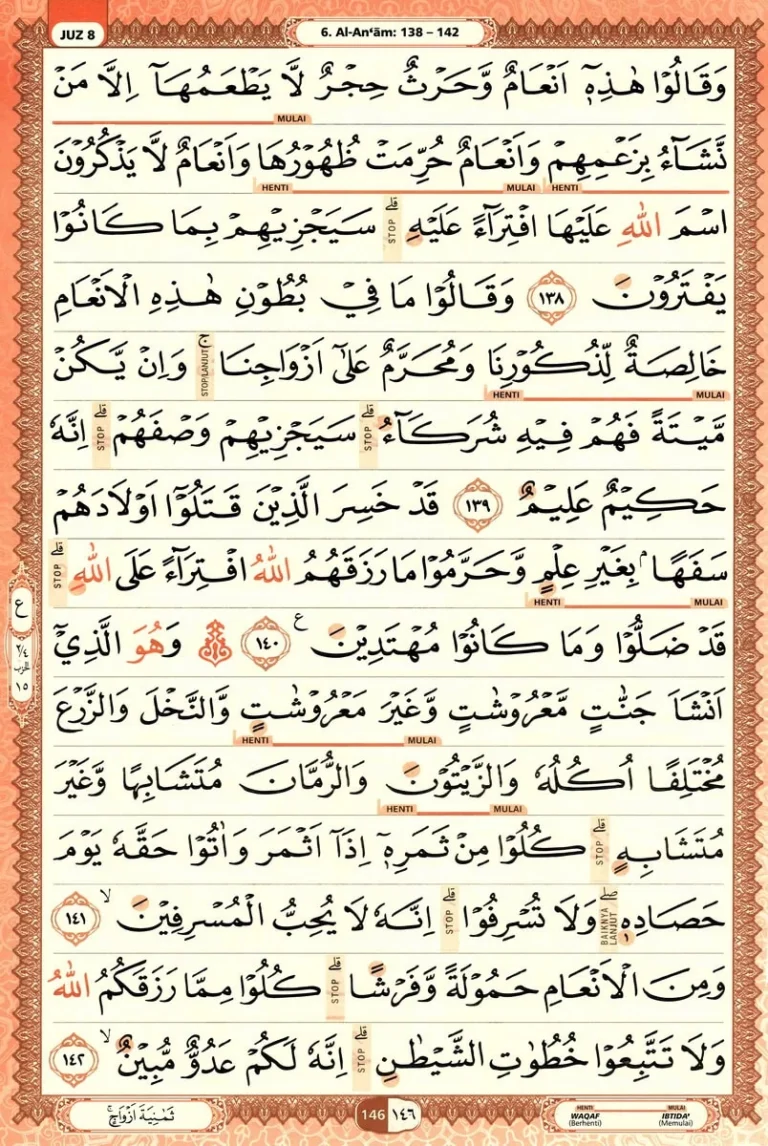 JUZ 8
6. Al-An‘ām: 138 – 142
وَقَالُوْا هٰذِهٖٓ اَنْعَامٌ وَّحَرْثٌ حِجْرٌ لَّا يَطْعَمُهَآ اِلَّا مَنْ
MULAI
نَّشَاۤءُ بِزَعْمِهِمْ وَاَنْعَامٌ حُرِّمَتْ ظُهُوْرُهَا وَاَنْعَامٌ لَّا يَذْكُرُوْنَ
HENTI MULAI HENTI
اسْمَ اللّٰهِ عَلَيْهَا افْتِرَاۤءً عَلَيْهِ ۗ سَيَجْزِيْهِمْ بِمَا كَانُوْا
STOP
يَفْتَرُوْنَ ١٣٨ وَقَالُوْا مَا فِيْ بُطُوْنِ هٰذِهِ الْاَنْعَامِ
خَالِصَةٌ لِّذُكُوْرِنَا وَمُحَرَّمٌ عَلٰٓى اَزْوَاجِنَا ۚ وَاِنْ يَّكُنْ
STOP/LANJUT
HENTI MULAI
مَّيْتَةً فَهُمْ فِيْهِ شُرَكَاۤءُ ۗ سَيَجْزِيْهِمْ وَصْفَهُمْ ۗ اِنَّهٗ
STOP STOP
حَكِيْمٌ عَلِيْمٌ ١٣٩ قَدْ خَسِرَ الَّذِيْنَ قَتَلُوْٓا اَوْلَادَهُمْ
سَفَهًاۢ بِغَيْرِ عِلْمٍ وَّحَرَّمُوْا مَا رَزَقَهُمُ اللّٰهُ افْتِرَاۤءً عَلَى اللّٰهِ ۗ
STOP
HENTI MULAI
قَدْ ضَلُّوْا وَمَا كَانُوْا مُهْتَدِيْنَ ࣖ ١٤٠ ۞ وَهُوَ الَّذِيْٓ
اَنْشَاَ جَنّٰتٍ مَّعْرُوْشٰتٍ وَّغَيْرَ مَعْرُوْشٰتٍ وَّالنَّخْلَ وَالزَّرْعَ
HENTI MULAI
مُخْتَلِفًا اُكُلُهٗ وَالزَّيْتُوْنَ وَالرُّمَّانَ مُتَشَابِهًا وَّغَيْرَ
HENTI MULAI
مُتَشَابِهٍ ۗ كُلُوْا مِنْ ثَمَرِهٖٓ اِذَآ اَثْمَرَ وَاٰتُوْا حَقَّهٗ يَوْمَ
STOP
حَصَادِهٖ ۖ وَلَا تُسْرِفُوْا ۗ اِنَّهٗ لَا يُحِبُّ الْمُسْرِفِيْنَ ۙ ١٤١
BAIKNYA LANJUT STOP
وَمِنَ الْاَنْعَامِ حَمُوْلَةً وَّفَرْشًا ۗ كُلُوْا مِمَّا رَزَقَكُمُ اللّٰهُ
STOP
وَلَا تَتَّبِعُوْا خُطُوٰتِ الشَّيْطٰنِ ۗ اِنَّهٗ لَكُمْ عَدُوٌّ مُّبِيْنٌ ۙ ١٤٢
STOP
ع
٢/٤
الحزب
١٥
ثَمٰنِيَةَ اَزْوَاجٍ ۚ
146 ١٤٦
HENTI MULAI
WAQAF IBTIDA'
(Berhenti) (Memulai)